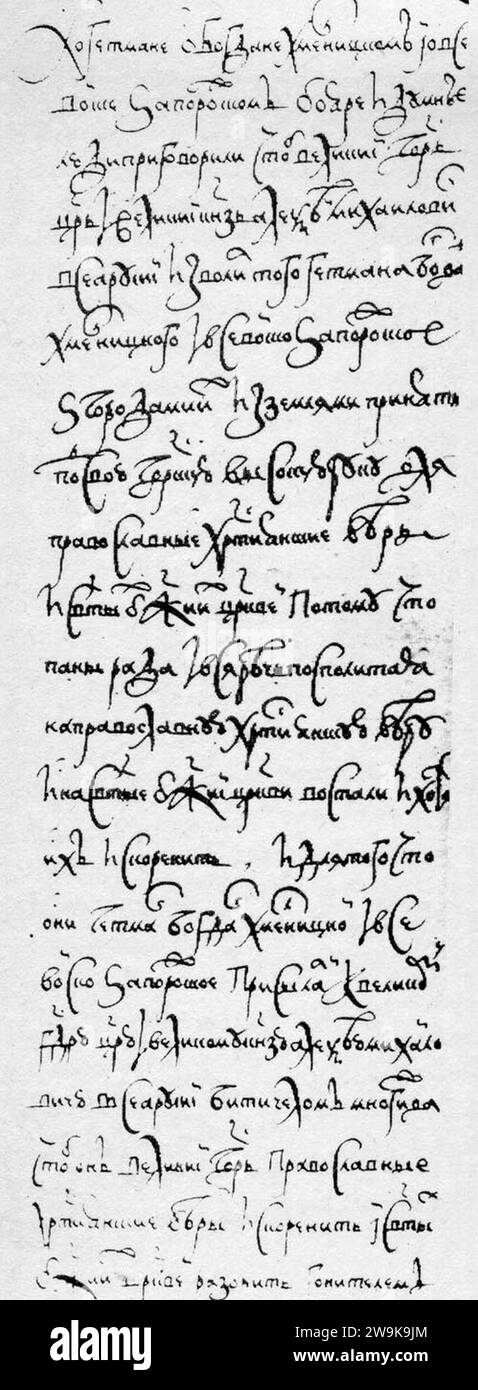 о гетмане о Богдане Хмелницком і о все
войске Запорожском бояре и думные
люди приговорили что великий гсдрь
црь і великий кнзь Алексѣй Михаилови
всеа Русиі изволил того гетмана Богдана
Хмелницкого і все войско Запорожское
з городами их и землями принять
под свою гсдрскую высокую руку для
православные хрстиянские вѣры
и святых бжиих црквей потому что
паны рада і вся рѣчь посполитая
на православную хрстиянскую вѣру
и на святые бжии цркви востали и хотят
их искоренить и для того что
они гетман Богдан Хмелницкой і все
войско Запорожское присылали к великому
гсдрю црю і великому кнзю Алексѣю Михайло
вичю всеа Русиі бити челом многижда
чтоб он великий гсдрь православные
хрстиянские вѣры искоренить і святых
бжиих црквей разорить гонителем
alamy
Image ID: 2W9K9JM
www.alamy.com